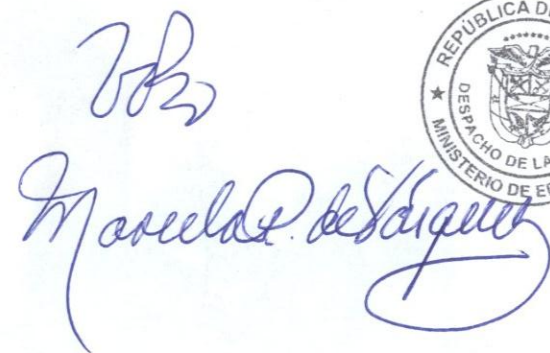 VoBo
Marcela P. de Vásquez
REPÚBLICA DE
DESPACHO DE LA
MINISTERIO DE